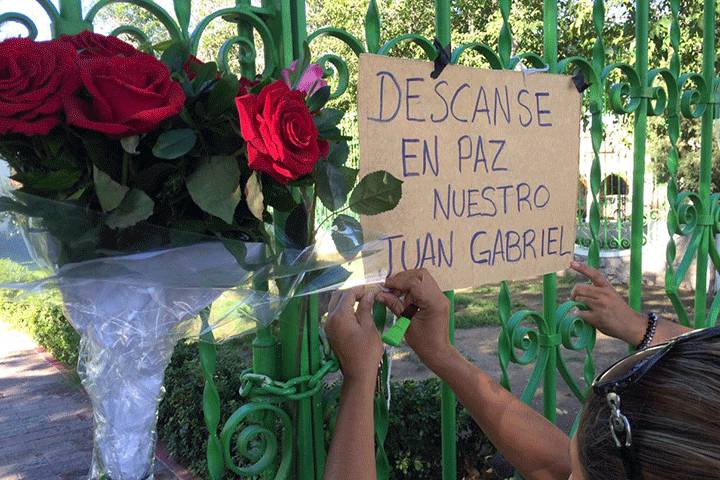 DESCANSE
EN PAZ
NUESTRO
JUAN GABRIEL